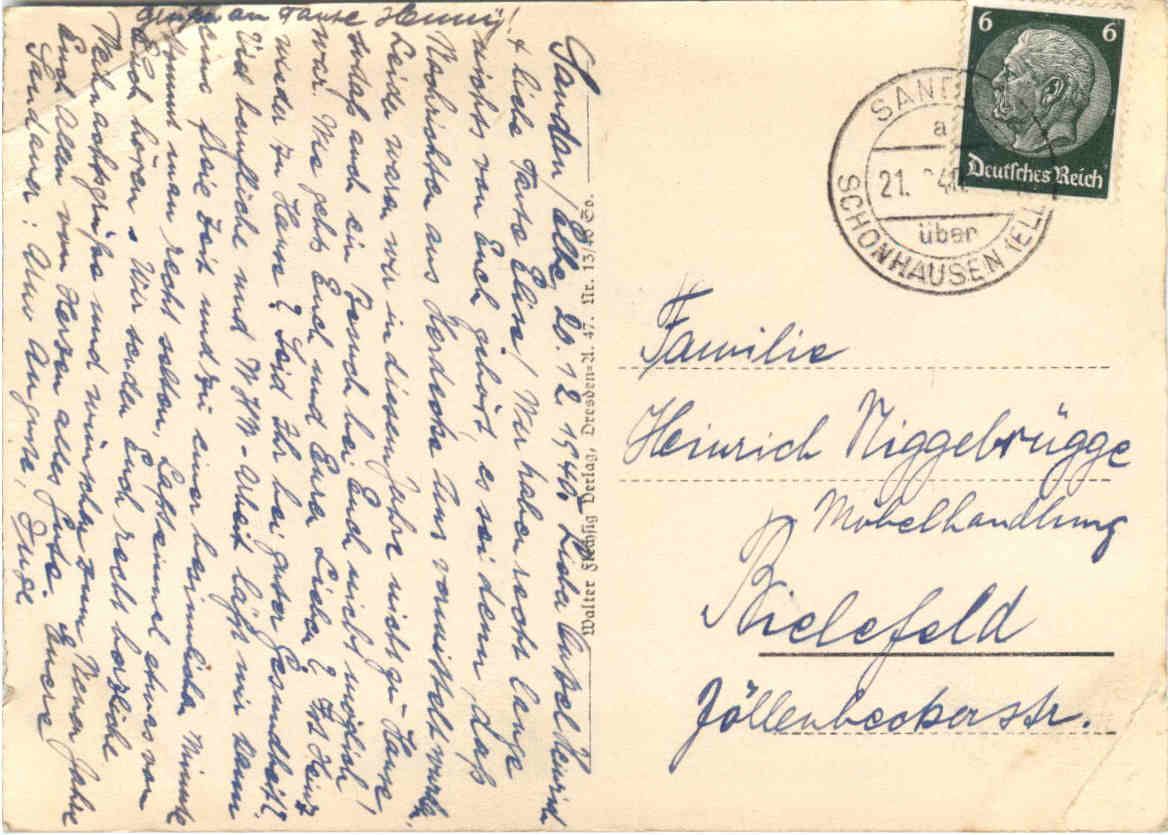 Grüße an Tante Henny!
Sandau/Elbe, 20.12.1940. Lieber Onkel Heinrich
& liebe Tante Elise! Wir haben recht lange
nichts von Euch gehört, es sei denn, daß
Nachrichten aus Herdecke uns vermittelt wurden.
Leider waren wir in diesem Jahre nicht zu Hause,
sodaß auch ein Besuch bei Euch nicht möglich
war. Wie gehts Euch und Eure Lieben? Ist Heinz
wieder zu Haus? Seid Ihr bei guter Gesundheit?
Viel berufliche und -Arbeit läßt mir kaum
eine freie Zeit und zu einer besinnlichen Minute
kommt man recht selten. Laßt einmal etwas von
Euch hören. Wir senden Euch recht herzliche
Weihnachtsgrüße und wünschen zum Neuen Jahre
Euch Allen von Herzen alles Gute. Euere
Sandauer: Auguste, Inge
Walter Flechsig Verlag, Dresden-A. 47. Nr. 13/48 So.
6 6
Deutsches Reich
SAND
a
21. 40
über
SCHÖNHAUSEN (EL
Familie
Heinrich Niggebrügge
Möbelhandlung
Bielefeld
Jöllenbeckerstr.